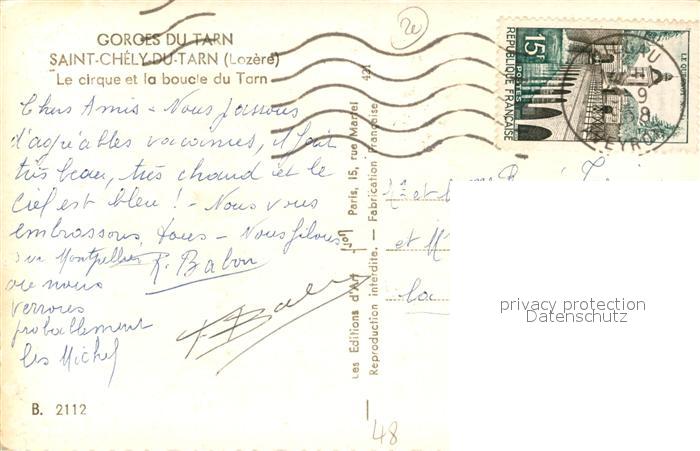 GORGES DU TARN
SAINT-CHÉLY-DU-TARN (Lozère)
Le cirque et la boucle du Tarn
Chers Amis - Nous passons
d'agréables vacances, il fait
très beau, très chaud et le
ciel est bleu ! - Nous vous
embrassons tous - Nous filons
sur Montpellier
R. Babou
où nous
verrons
probablement
les Michel
B. 2112
Les Editions d'Art
Paris, 15, rue Martel
Reproduction interdite. — Fabrication Française.
421
15F
POSTES
REPUBLIQUE FRANÇAISE
AVEYRON
et M
la
48
privacy protection
Datenschutz